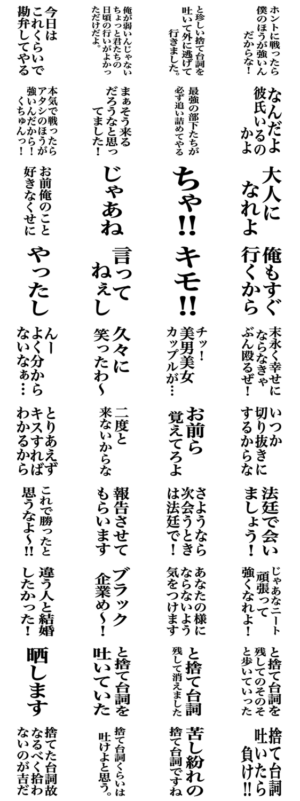 ホントに戦ったら
僕のほうが強いん
だからな!
と珍しい捨て台詞を
吐いて外に逃げて
行きました。
俺が弱いんじゃない
ちょっと君たちの
日頃の行いがよかっ
ただけだよ。
今日は
これくらいで
勘弁してやる
なんだよ
彼氏いるの
かよ
最強の部下たちが
必ず追い詰めてやる
まぁそう来る
だろうなと思っ
てました!
本気で戦ったら
アタシのほうが
強いんだから!
くちゅんっ!
大人に
なれよ
ちゃ!!
じゃあね
お前俺のこと
好きなくせに
俺もすぐ
行くから
キモ!!
言って
ねぇし
やったし
末永く幸せに
ならなきゃ
ぶん殴るぜ!
チッ!
美男美女
カップルが…
久々に
笑ったわ〜
んー
よく分から
ないなぁ…
いつか
切り抜きに
するからな
お前ら
覚えてろよ
二度と
来ないからな
とりあえず
キスすれば
わかるから
法廷で会い
ましょう!
さようなら
次会うとき
は法廷で!
報告させて
もらいます
これで勝ったと
思うなよ〜!!
じゃあなニート
頑張って
強くなれよ!
あなたの様に
ならないよう
気をつけます
ブラック
企業め〜!
違う人と結婚
したかった!
と捨て台詞を
残してのそのそ
と歩いていった
と捨て台詞
残して消えました
と捨て台詞を
吐いていた
晒します
捨て台詞
吐いたら
負け!!
苦し紛れの
捨て台詞ですね
捨て台詞くらいは
吐けよと思う。
捨てた台詞故
なるべく拾わ
ないのが吉だ